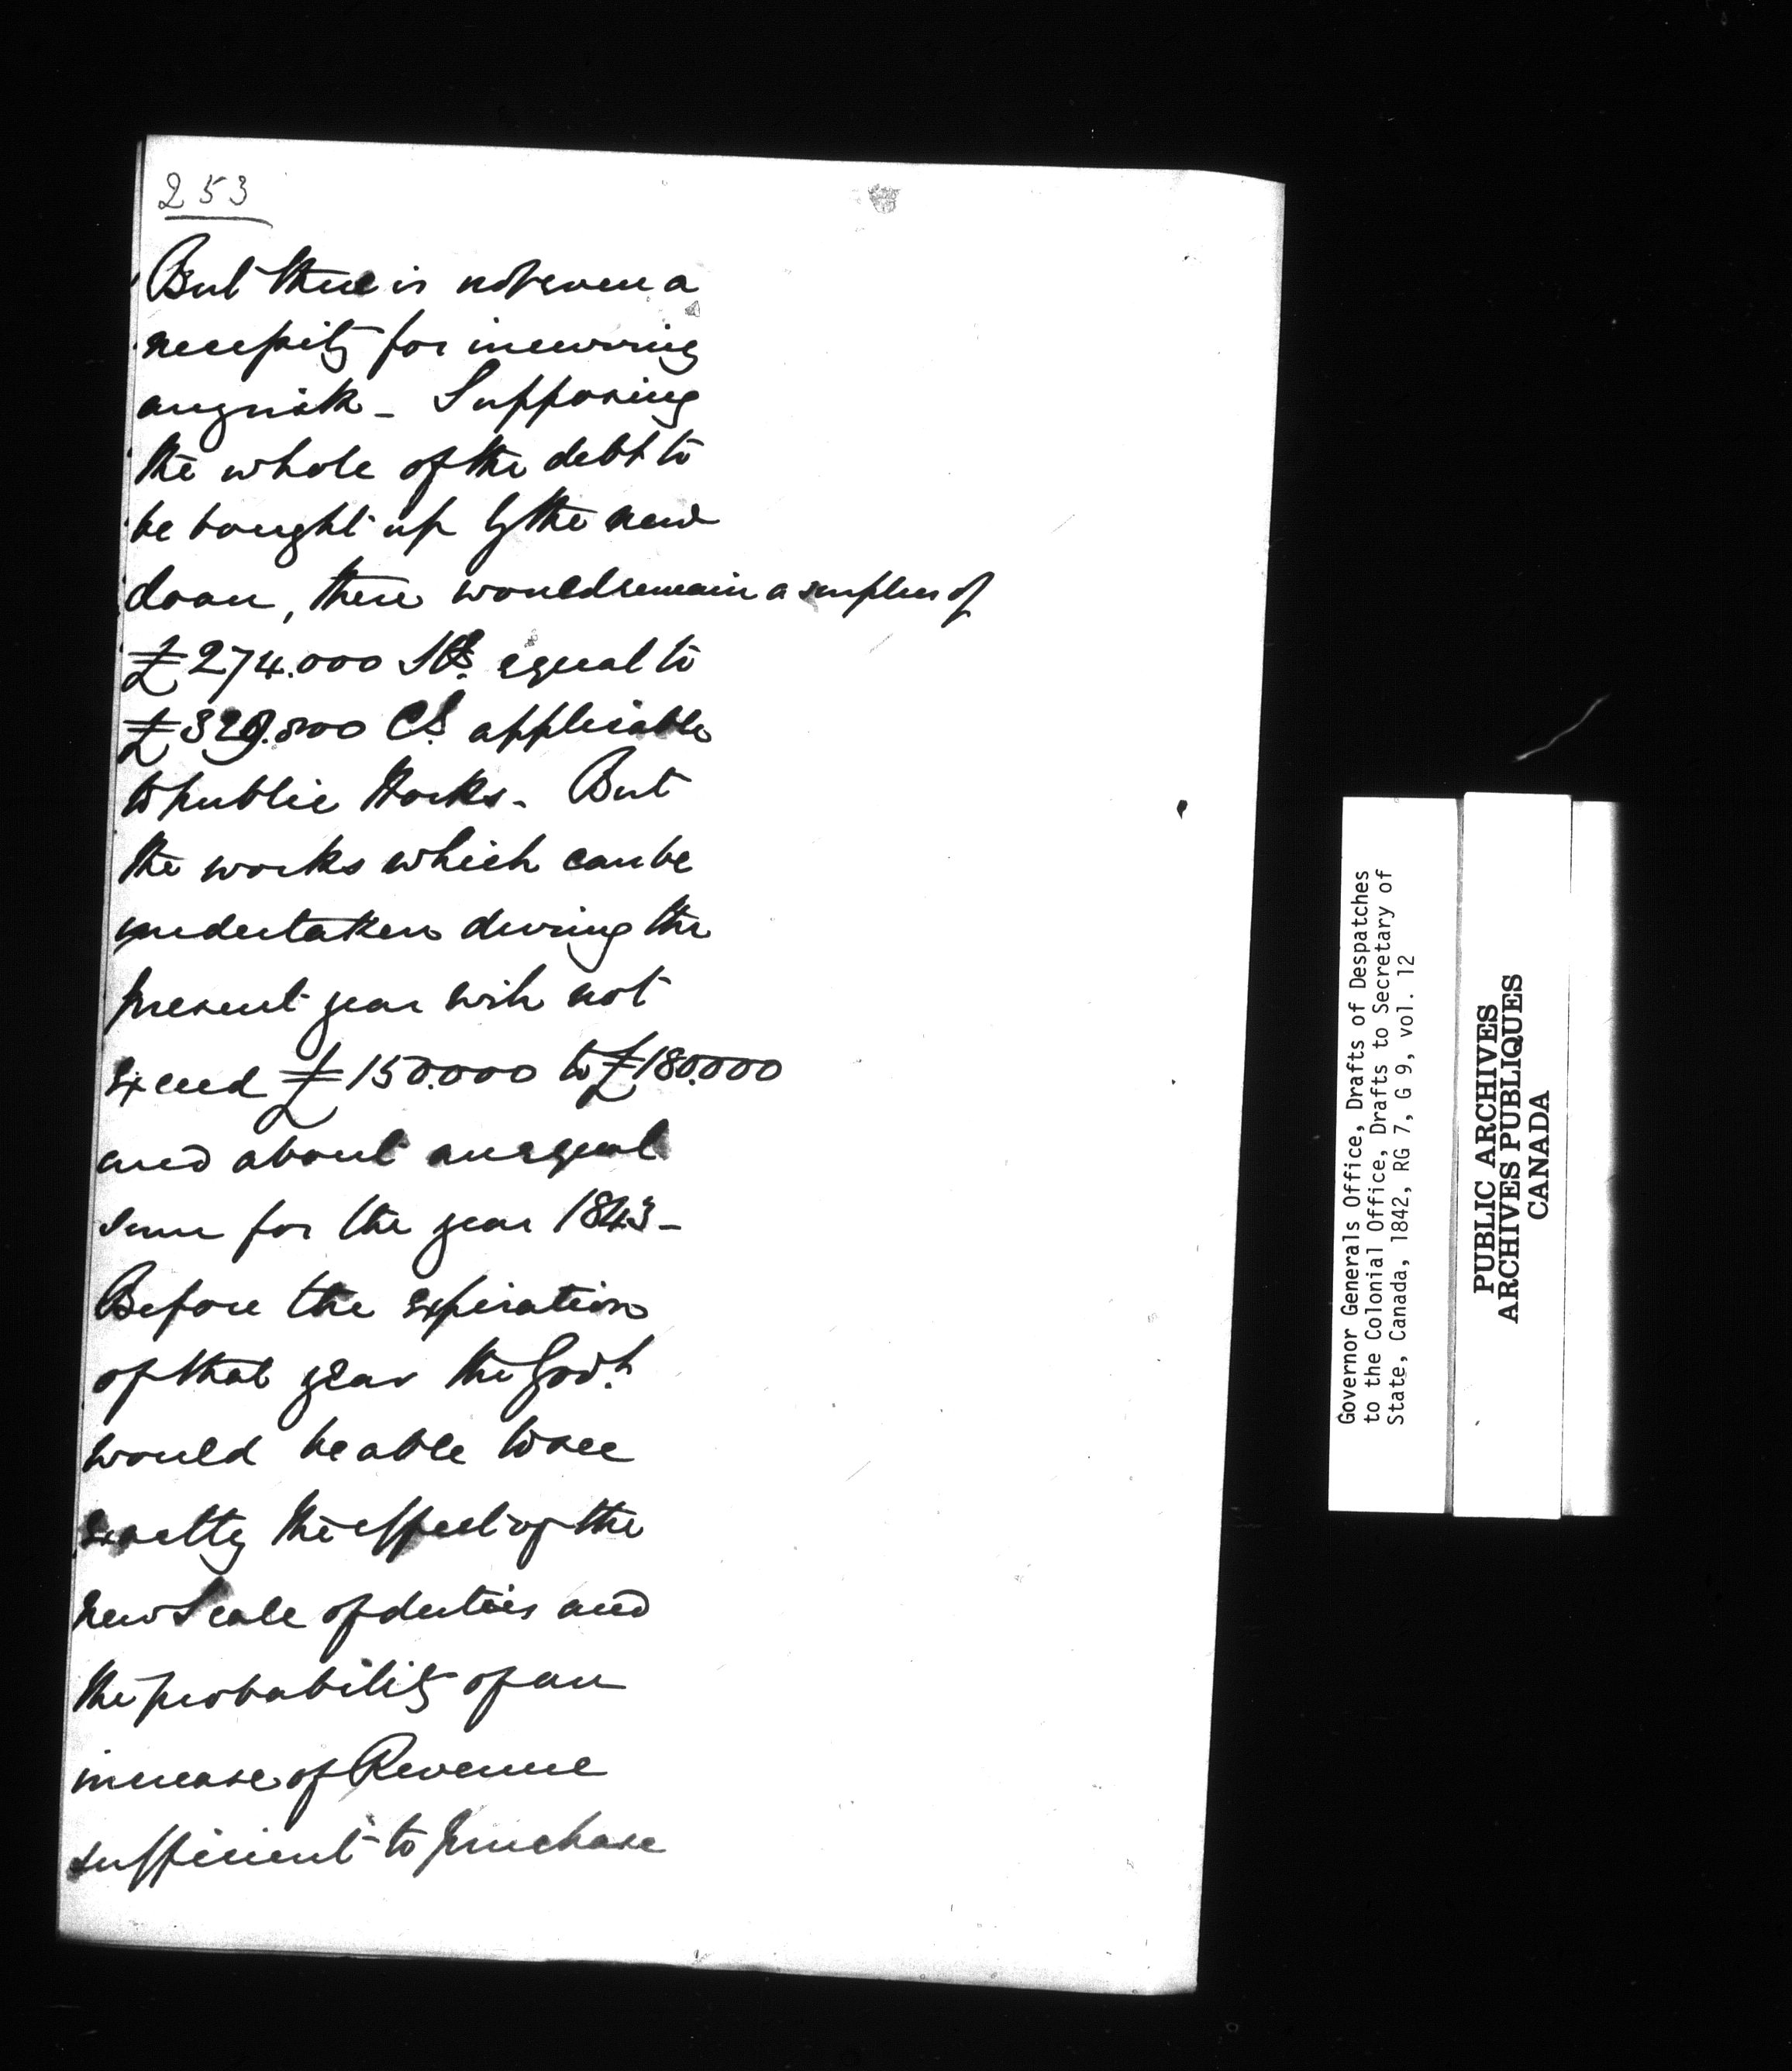 253
But there is not even a
necessity for incurring
any risk - Supposing
the whole of the debt to
be bought up by the new
loan, there would remain a surplus of
£274.000 Stg. equal to
£329.800 Cy. applicable
to public Works. But
the works which can be
undertaken during the
present year will not
exceed £150.000 to £180.000
and about an equal
sum for the year 1843 -
Before the expiration
of that year the Govt.
would be able to see
exactly the effect of the
new Scale of duties and
the probability of an
increase of Revenue
sufficient to purchase
Governor Generals Office, Drafts of Despatches
to the Colonial Office, Drafts to Secretary of
State, Canada, 1842, RG 7, G 9, vol. 12
PUBLIC ARCHIVES
ARCHIVES PUBLIQUES
CANADA